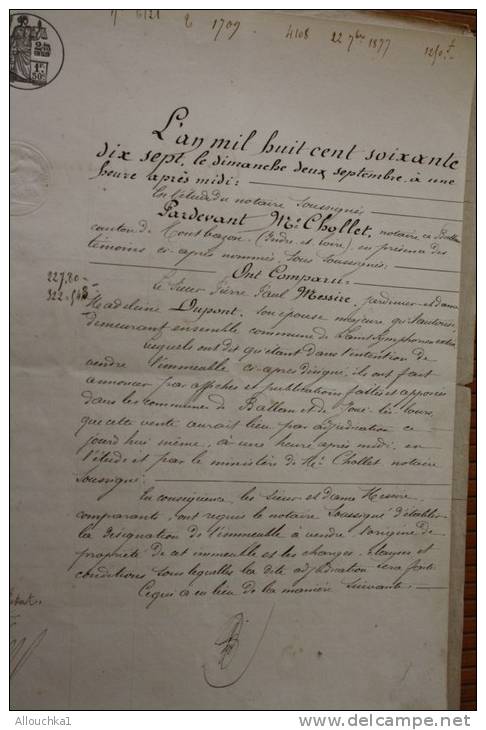 1709
4108
22 7bre 1877
L'an mil huit cent soixante
dix sept, le dimanche deux septembre, à une
heure après midi:
En l'étude du notaire soussigné,
Pardevant Me Chollet, notaire à Ballan
canton de Montbazon, (Indre et Loire), en présence des
témoins ci-après nommés, sous soussignés:
Ont Comparu:
22780
322
Le Sieur Pierre Paul Messire, jardinier et dame
Madeleine Dupont, son épouse majeure qu'il autorise,
demeurant ensemble commune de Saint Symphorien
Lesquels ont dit qu'étant dans l'intention de
vendre l'immeuble ci-après désigné, ils ont fait
annoncer par affiches et publications faites et apposées
dans les communes de Ballan et de Joué-les-Tours,
que cette vente aurait lieu par adjudication ce
jourd'hui même, à une heure après midi, en
l'étude et par le ministère de Me Chollet notaire
soussigné:
En conséquence, les sieur et dame Messire,
comparants, ont requis le notaire soussigné d'établir
la désignation de l'immeuble à vendre, l'origine de
propriété de cet immeuble et les charges, clauses et
conditions sous lesquelles la dite adjudication sera faite
Ce qui a eu lieu de la manière suivante:
Allouchka1
www.delcampe.net